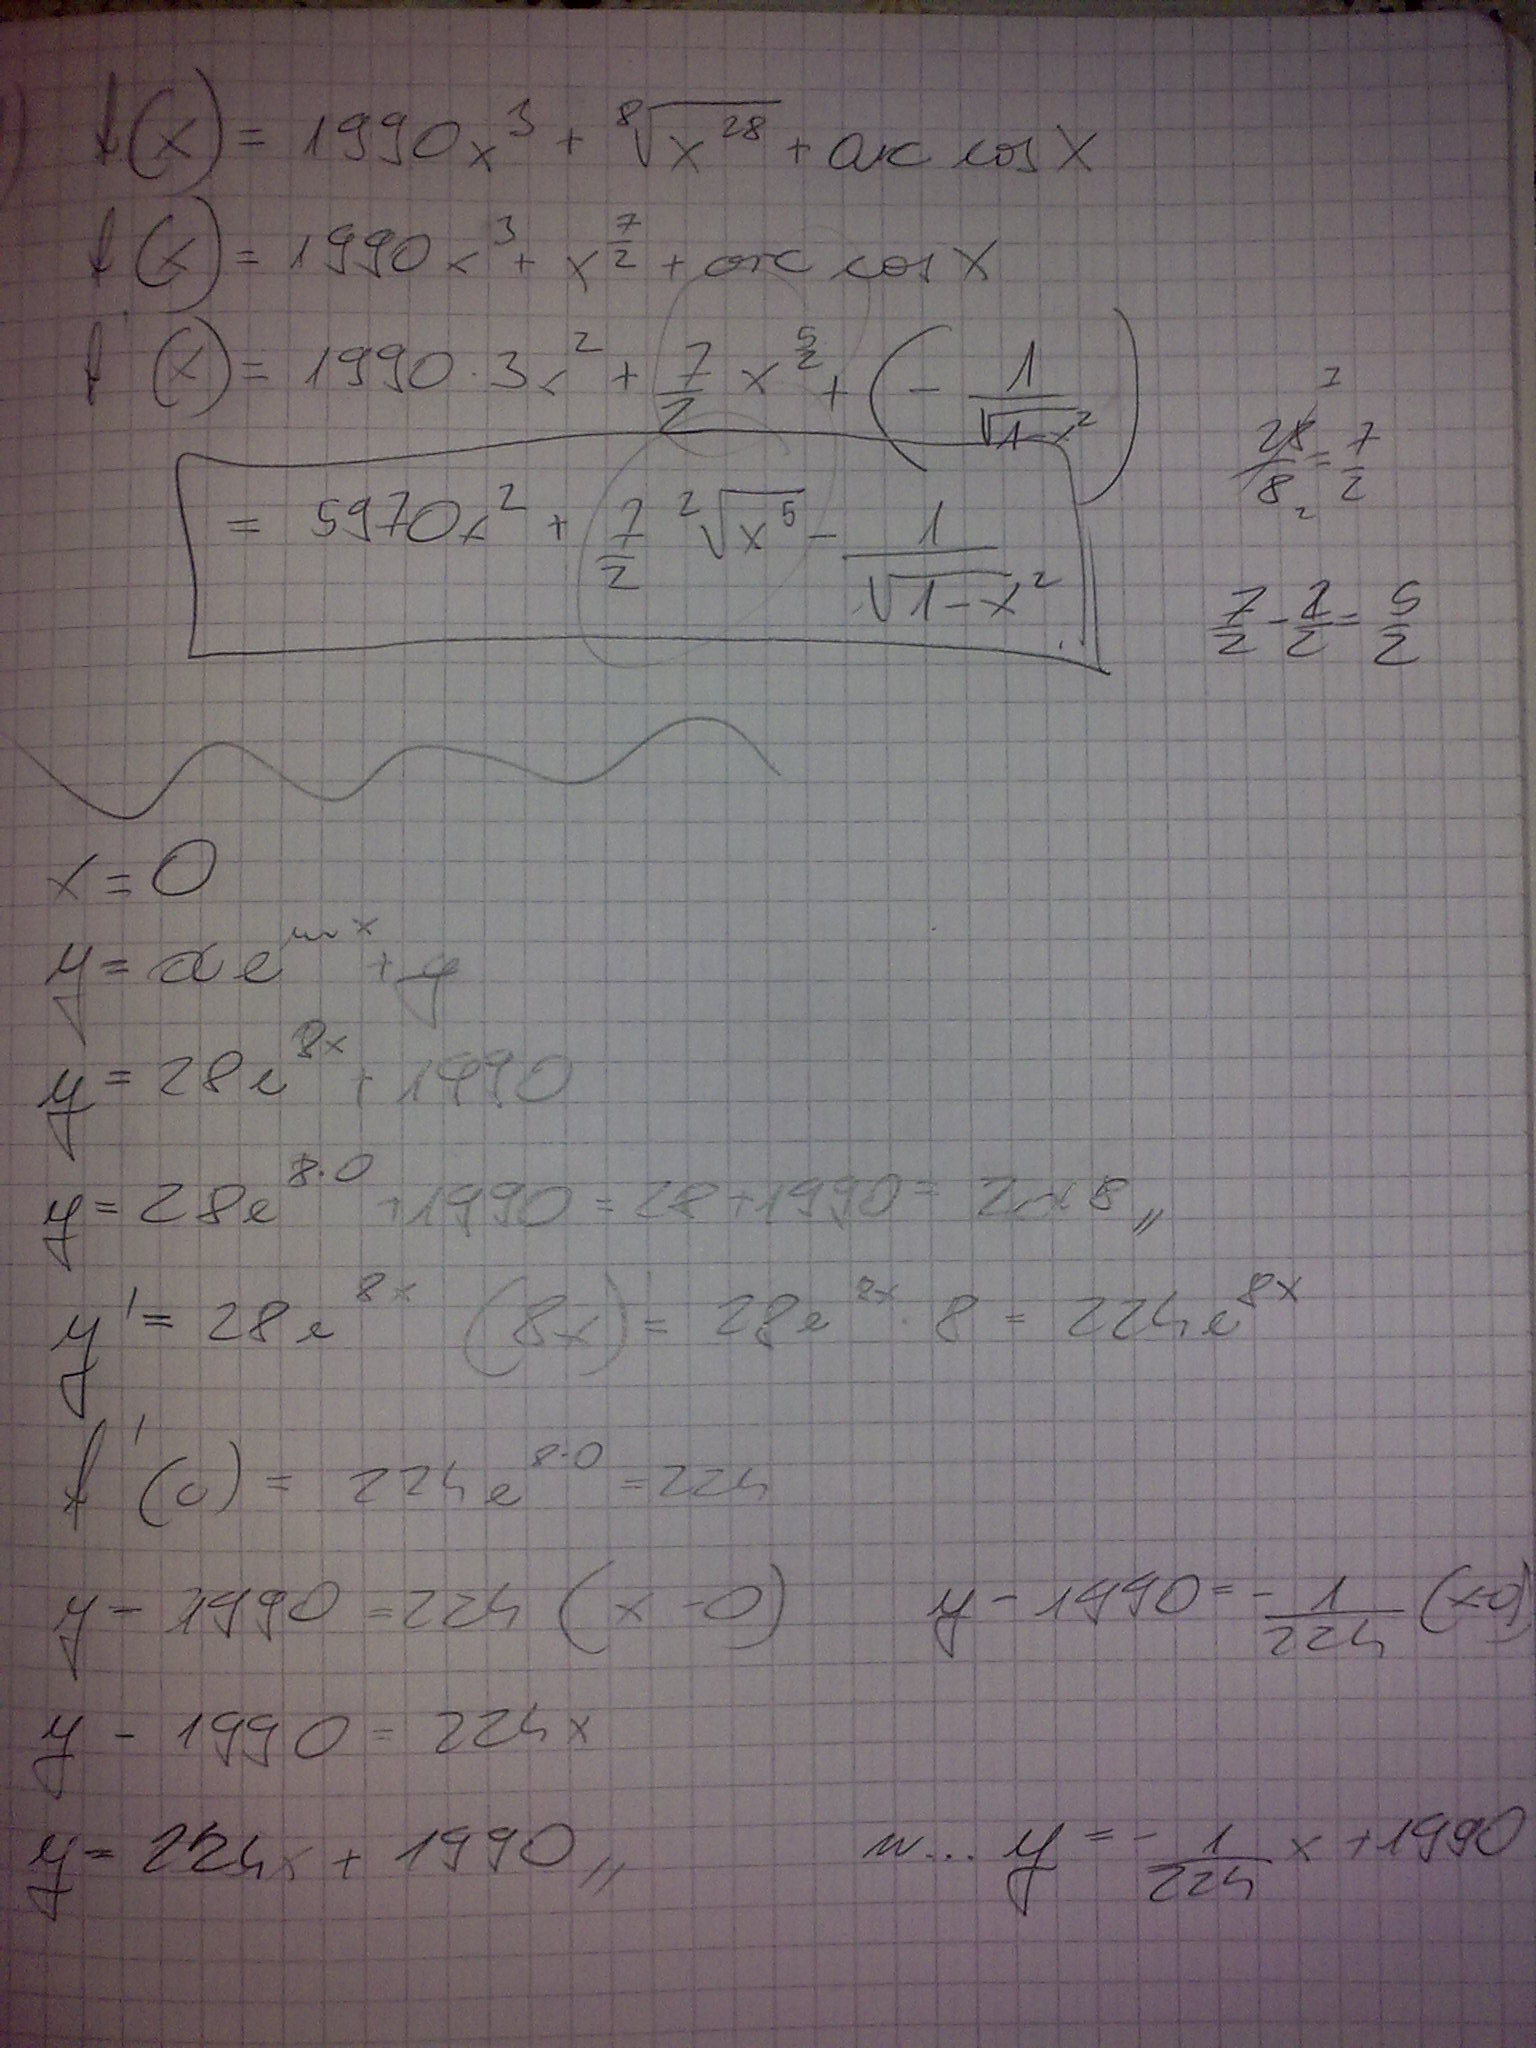 f(x) = 1990x³ + ⁸√x²⁸ + arc cos x
f(x) = 1990x³ + x^(7/2) + arc cos x
f'(x) = 1990·3x² + 7/2 x^(5/2) + (- 1/√1-x²)
= 5970x² + 7/2 ²√x⁵ - 1/√1-x²
28/8 = 7/2
7/2 - 2/2 = 5/2
x = 0
y = d e^(mx) + y
y = 28e^(8x) + 1990
y = 28e^(8·0) + 1990 = 28 + 1990 = 2018 "
y' = 28e^(8x) (8x)' = 28e^(8x) · 8 = 224e^(8x)
f'(0) = 224e^(8·0) = 224
y - 1990 = 224 (x - 0)
y - 1990 = - 1/224 (x-0)
y - 1990 = 224x
y = 224x + 1990 "
n... y = - 1/224 x + 1990